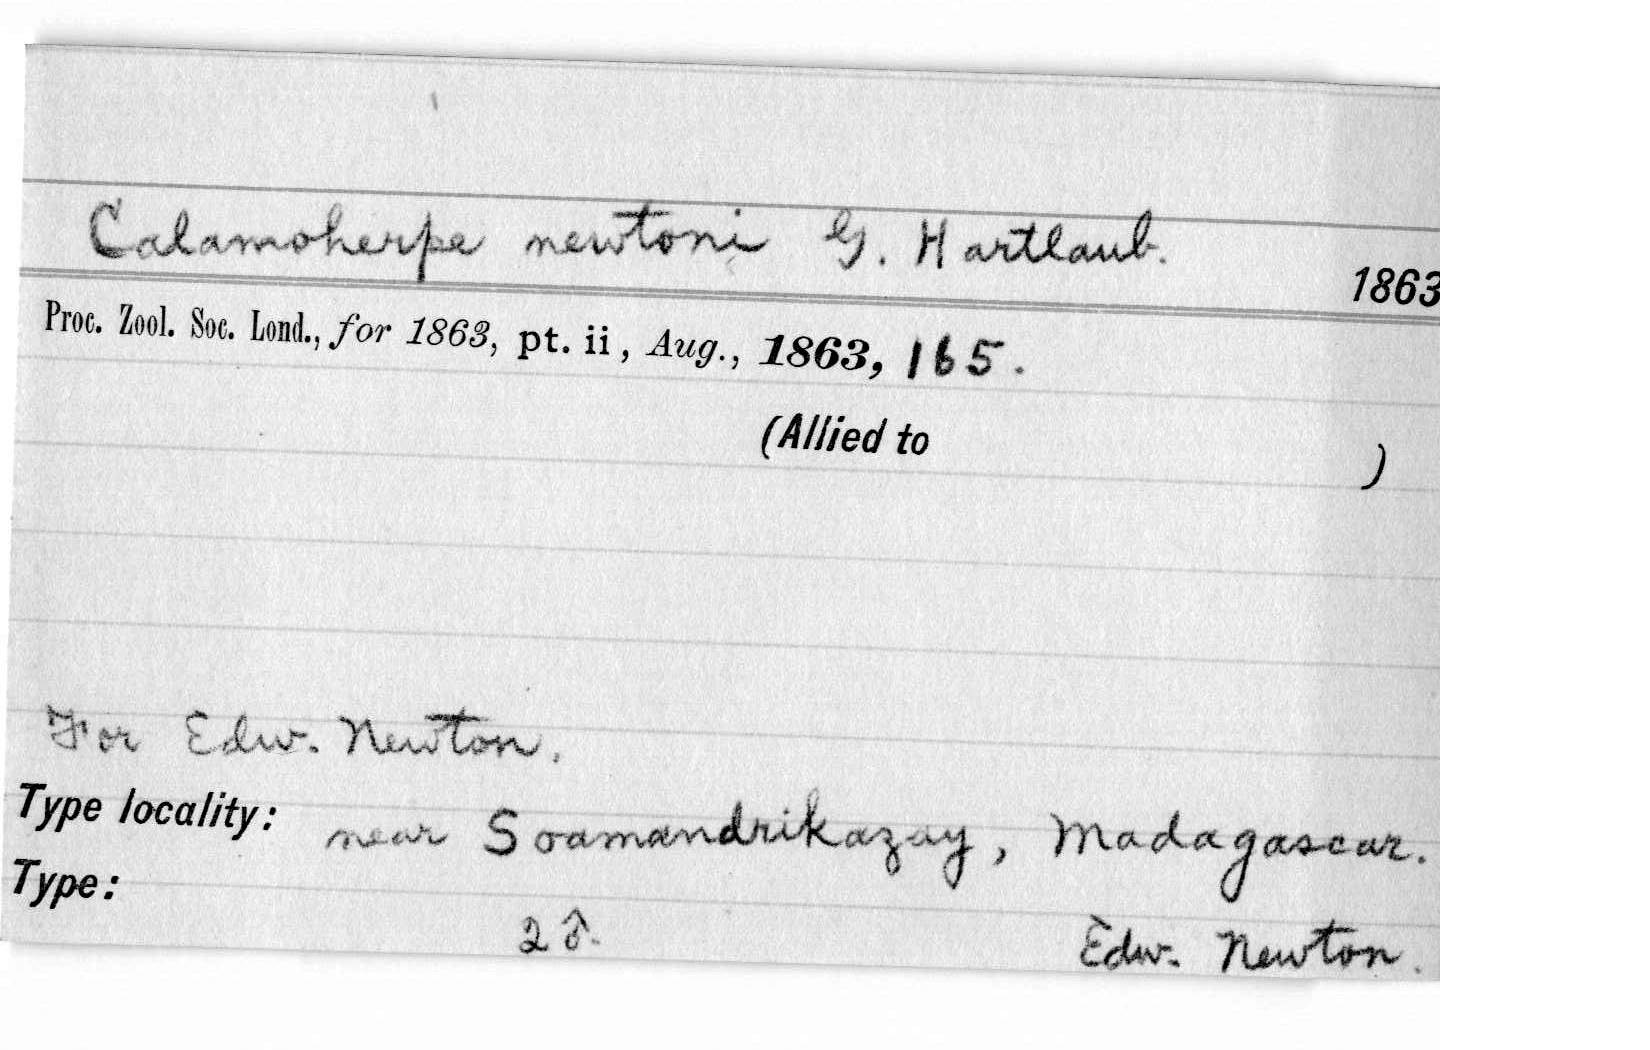 Calamoherpe newtoni G. Hartlaub.
1863
Proc. Zool. Soc. Lond., for 1863, pt. ii, Aug., 1863, 165.
(Allied to )
For Edw. Newton.
Type locality: near Soamandrikazay, Madagascar.
Type:
2♂. Edw. Newton.